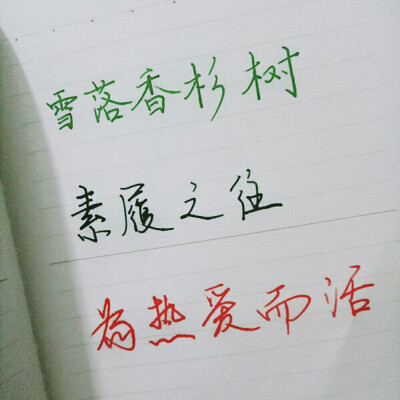 雪落香杉树
素履之往
为热爱而活